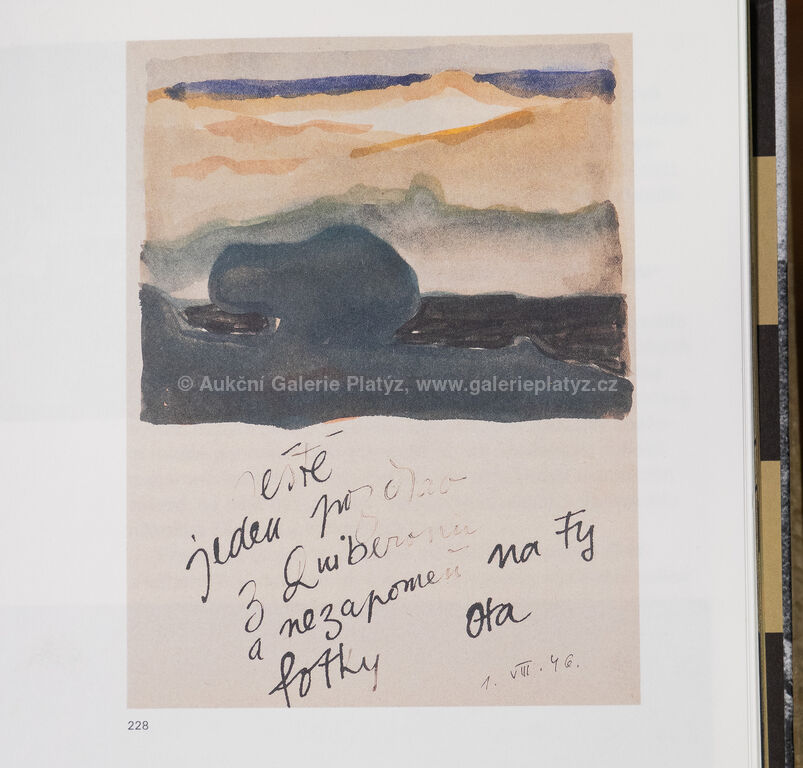 © Aukční Galerie Platýz, www.galerieplatyz.cz
ještě
jeden pozdrav
z Quiberonu
a nezapomeň na Ty
fotky Ota
1. VIII. 46.
228